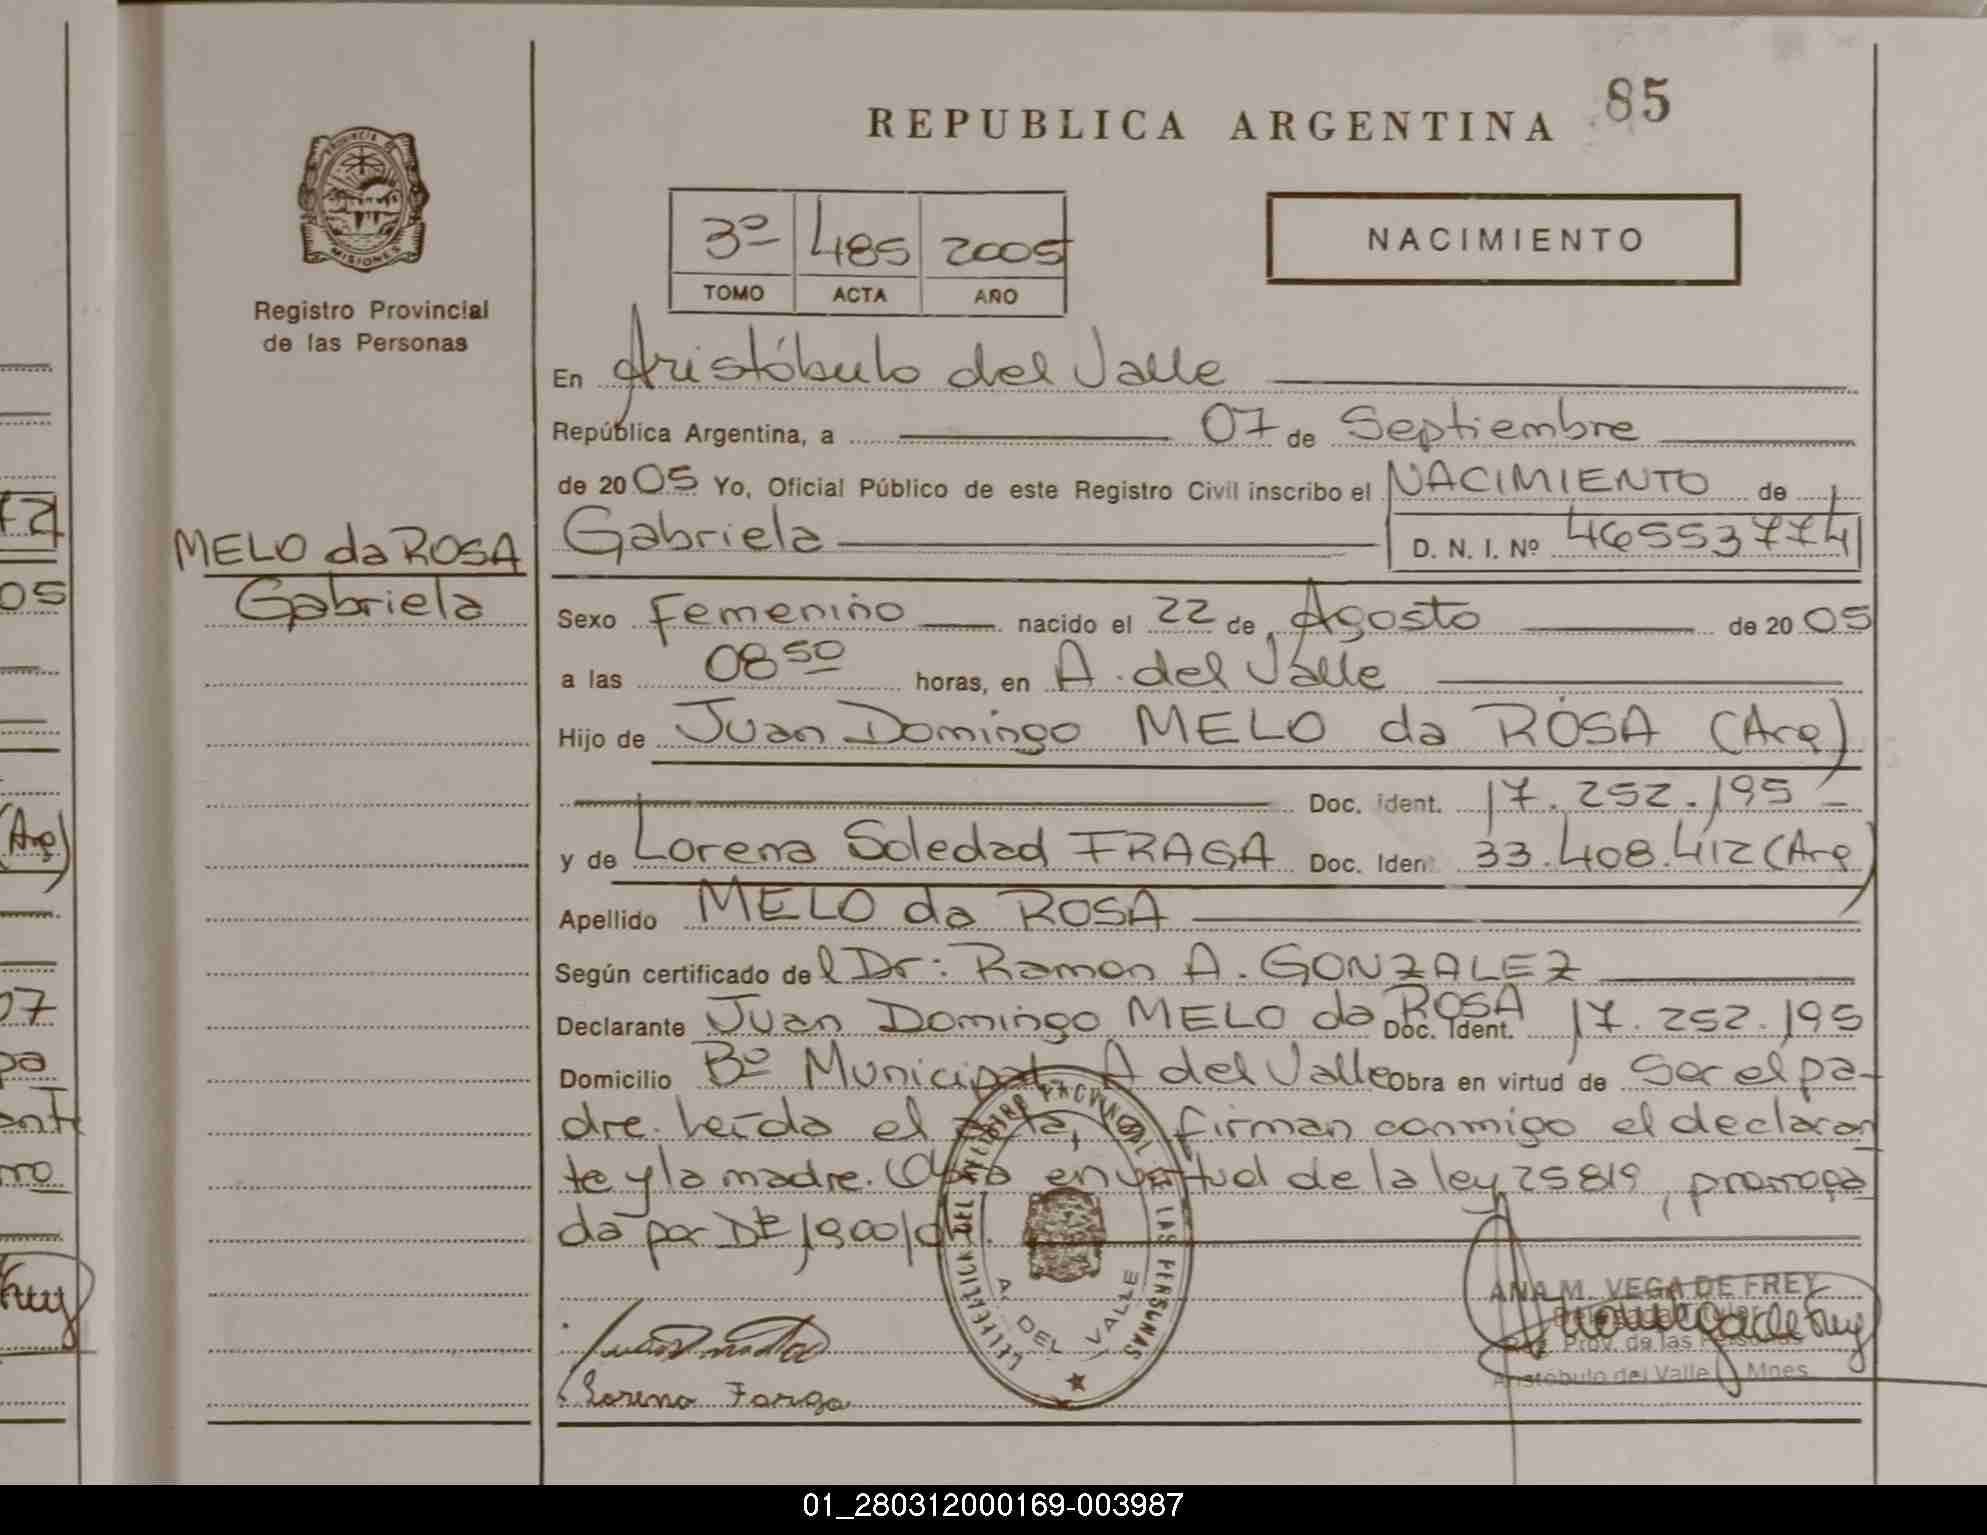 85
REPUBLICA ARGENTINA
PROVINCIA DE
MISIONES
Registro Provincial
de las Personas
3º 485 2005
TOMO ACTA AÑO
NACIMIENTO
En Aristóbulo del Valle
República Argentina, a 07 de Septiembre
de 2005 Yo, Oficial Público de este Registro Civil inscribo el NACIMIENTO de
Gabriela D. N. I. Nº 46553774
MELO da ROSA
Gabriela
Sexo Femenino nacido el 22 de Agosto de 2005
a las 08 50 horas, en A. del Valle
Hijo de Juan Domingo MELO da ROSA (Arg)
Doc. ident. 17.252.195
y de Lorena Soledad FRAGA Doc. Iden. 33.408.412 (Arg)
Apellido MELO da ROSA
Según certificado del Dr: Ramon A. GONZALEZ
Declarante Juan Domingo MELO da ROSA Doc. Ident. 17.252.195
Domicilio Bº Municipal A del Valle Obra en virtud de Ser el pa-
dre. Leída el acta, firman conmigo el declaran
te y la madre. Obra en virtud de la ley 25819, prorroga
da por Dto 1900/04.
REGISTRO PROVINCIAL DE LAS PERSONAS
A. DEL VALLE
ANA M. VEGA DE FREY
Prov. de las Personas
Aristóbulo del Valle Mnes
Lorena Farga
72
05
(Arg)
07
pa
01_280312000169-003987